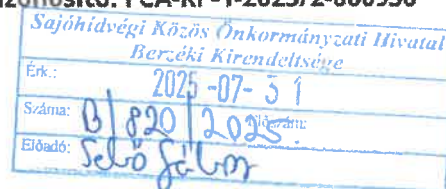 Sajóhídvégi Közös Önkormányzati Hivatal
Berzéki Kirendeltsége
Érk.: 2025 -07- 31
Száma: B/820/2025.
Előadó: